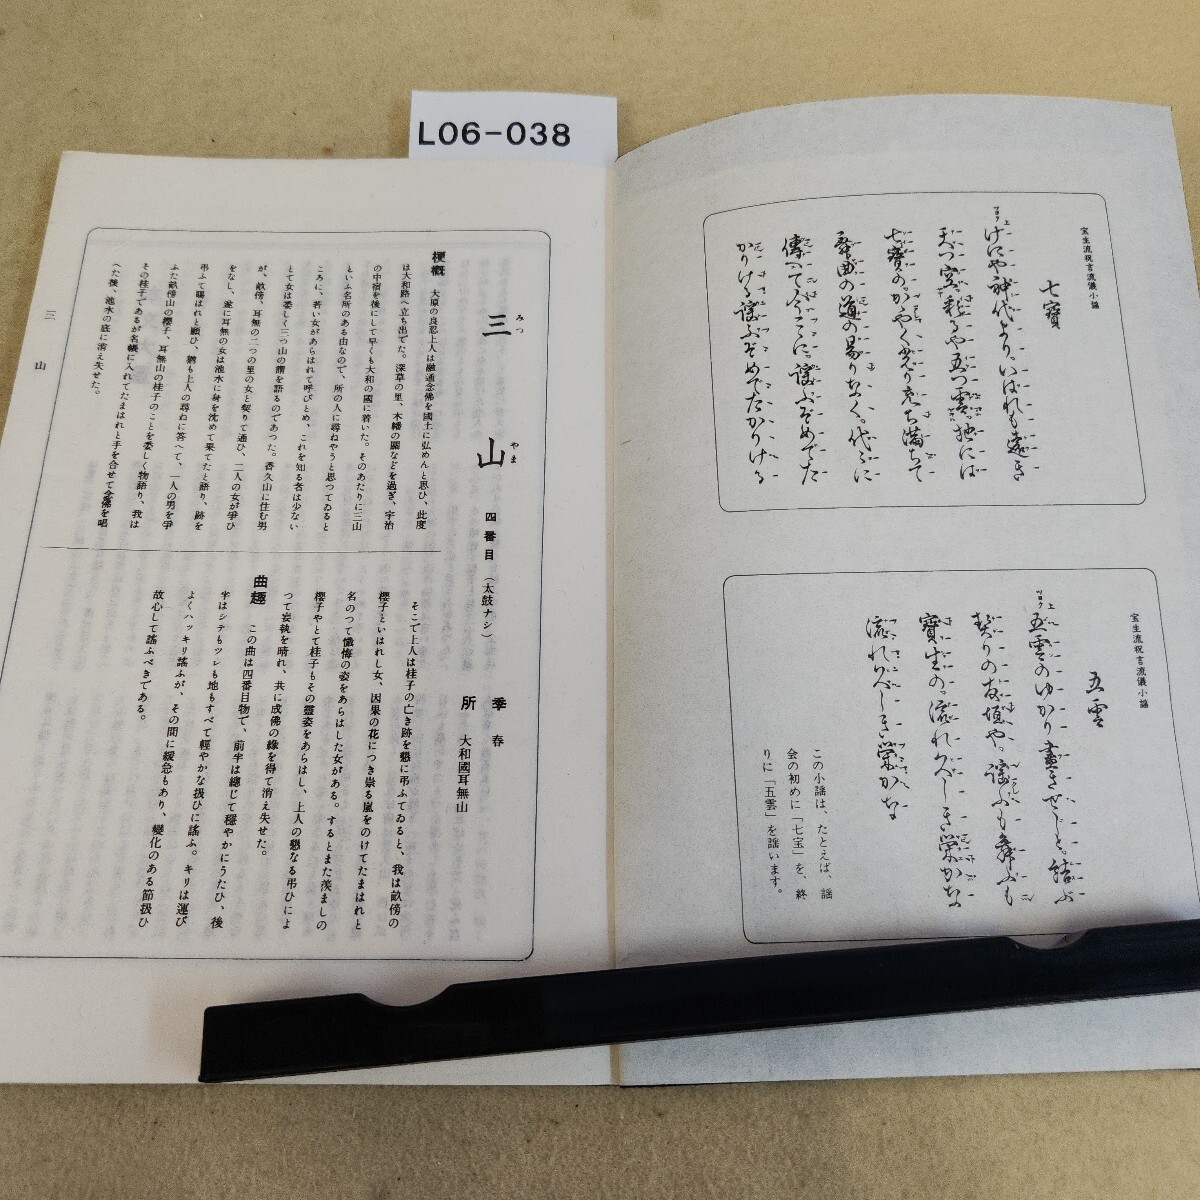 L06-038
宝生流祝言流儀小謡
七寶
ツヨク 上
けにや神代より、いはれも遠き
天つ空、翔るや五つ雲。地には
七寶の、かやく光り充ち満ちて
舞曲の道の易りなく。代々に
傳へて今こゝに。謡ふぞめでた
かりける謡ふぞめでたかりける
宝生流祝言流儀小謡
五雲
ツヨク 上
五雲のゆかり盡きせじと。結ぶ
契りの友垣や。謡ふも舞ふも
寶生の。流れ久しき榮かな
流れ久しき榮かな
この小謡は、たとえば、謡
会の初めに「七宝」を、終
りに「五雲」を謡います。
三山
みつ やま
四番目(太鼓ナシ)
季 春
所 大和國耳無山
梗概 大原の良忍上人は融通念佛を國土に弘めんと思ひ、此度
は大和路へ立ち出てた。深草の里、木幡の關などを過ぎ、宇治
の中宿を後にして早くも大和の國に着いた。そのあたりに三山
といふ名所のある由なので、所の人に尋ねやうと思つてゐると
ころに、若い女があらはれて呼びとめ、これを知る者は少ない
とて女は委しく三つ山の謂を語るのであつた。香久山に住む男
が、畝傍、耳無の二つの里の女と契りて通ひ、二人の女が爭ひ
をなし、遂に耳無の女は池水に身を沈めて果てたと語り、跡を
弔ふて賜はれと願ひ、猶も上人の尋ねに答へて、一人の男を爭
ふた畝傍山の櫻子、耳無山の桂子のことを委しく物語り、我は
その桂子であるが名帳に入れてたまはれと手を合せて念佛を唱
へた後、池水の底に消え失せた。
そこで上人は桂子の亡き跡を懇に弔ふてゐると、我は畝傍の
櫻子といはれし女、因果の花につき祟る嵐をのけてたまはれと
名のつて懺悔の姿をあらはした女がある。するとまた羨ましの
櫻子やとて桂子もその靈姿をあらはし、上人の懇なる弔ひによ
つて妄執を晴れ、共に成佛の緣を得て消え失せた。
曲趣 この曲は四番目物で、前半は總じて穩やかにうたひ、後
半はシテもツレも地もすべて輕やかな扱ひに謠ふ。キリは運び
よくハッキリ謠ふが、その間に緩急もあり、變化のある節扱ひ
故心して謠ふべきである。
三 山